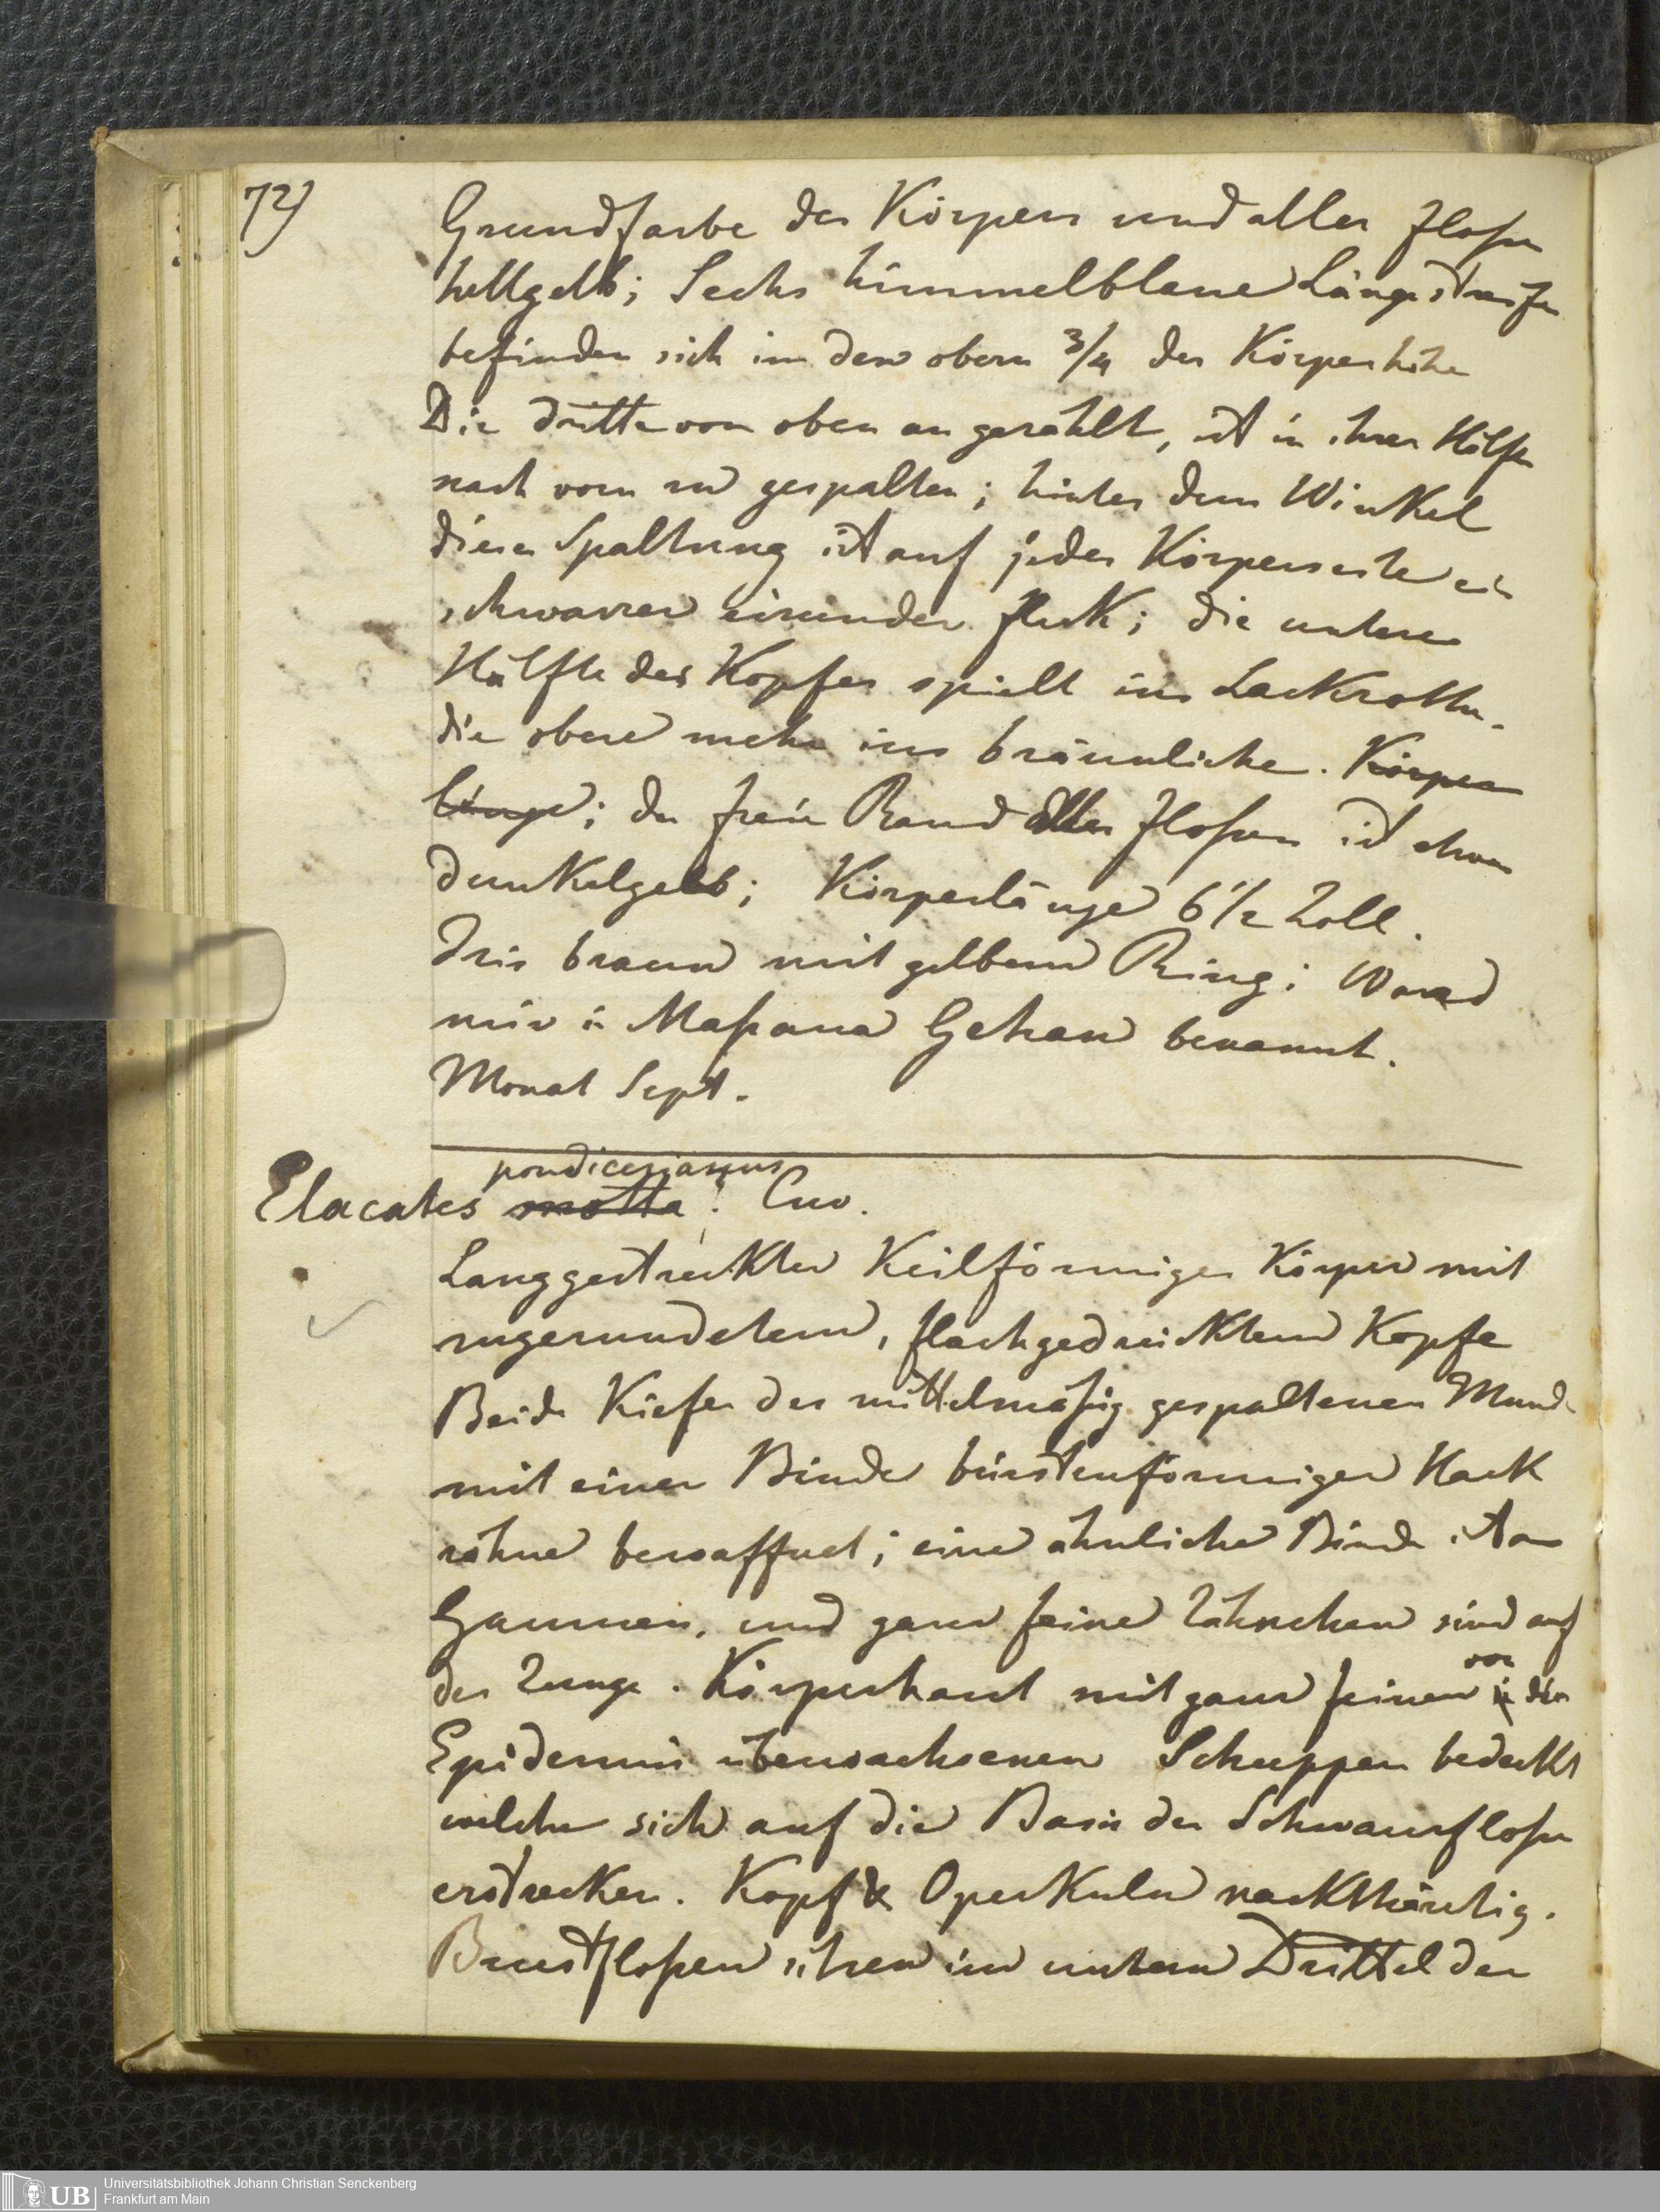 72)
Grundfarbe des Körpers und aller Floßen
hellgelb; Sechs himmelblaue Längsstreifen
befinden sich in den obern 3/4 der Körperhöhe
Die dritte von oben an gezählt, ist in ihrer Hälfte
nach vorn zu gespalten; hinter dem Winkel
dieser Spaltung ist auf jeder Körperseite ein
schwarzer eirunder Fleck; die untere
Hälfte des Kopfes spielt ins Lackrothe.
die obere mehr ins bräunliche. Körper
länge; der freie Rand aller Floßen ist etwas
dunkelgelb; Körperlänge 6 1/2 Zoll.
Iris braun mit gelbem Ring; Ward
mir in Maßaua Gehan benannt.
Monat Sept.
pondicerianus
Elacates motta! Cuv.
Langgestreckter Keilförmiger Körper mit
zugerundetem, flachgedrücktem Kopfe
Beide Kiefer des mittelmäßig gespaltenen Mundes
mit einer Binde bürstenförmiger Hack
zähne bewaffnet; eine ähnliche Binde ist am
Gaumen, und ganz feine Zähnchen sind auf
der Zunge. Körperhaut mit ganz feinen in der
von
Epidermis überwachsenen Schuppen bedeckt
welche sich auf die Basis der Schwanzfloße
erstrecken. Kopf & Operkuln nackthäutig.
Brustfloßen sitzen im untern Drittel der
Universitätsbibliothek Johann Christian Senckenberg
Frankfurt am Main
UB